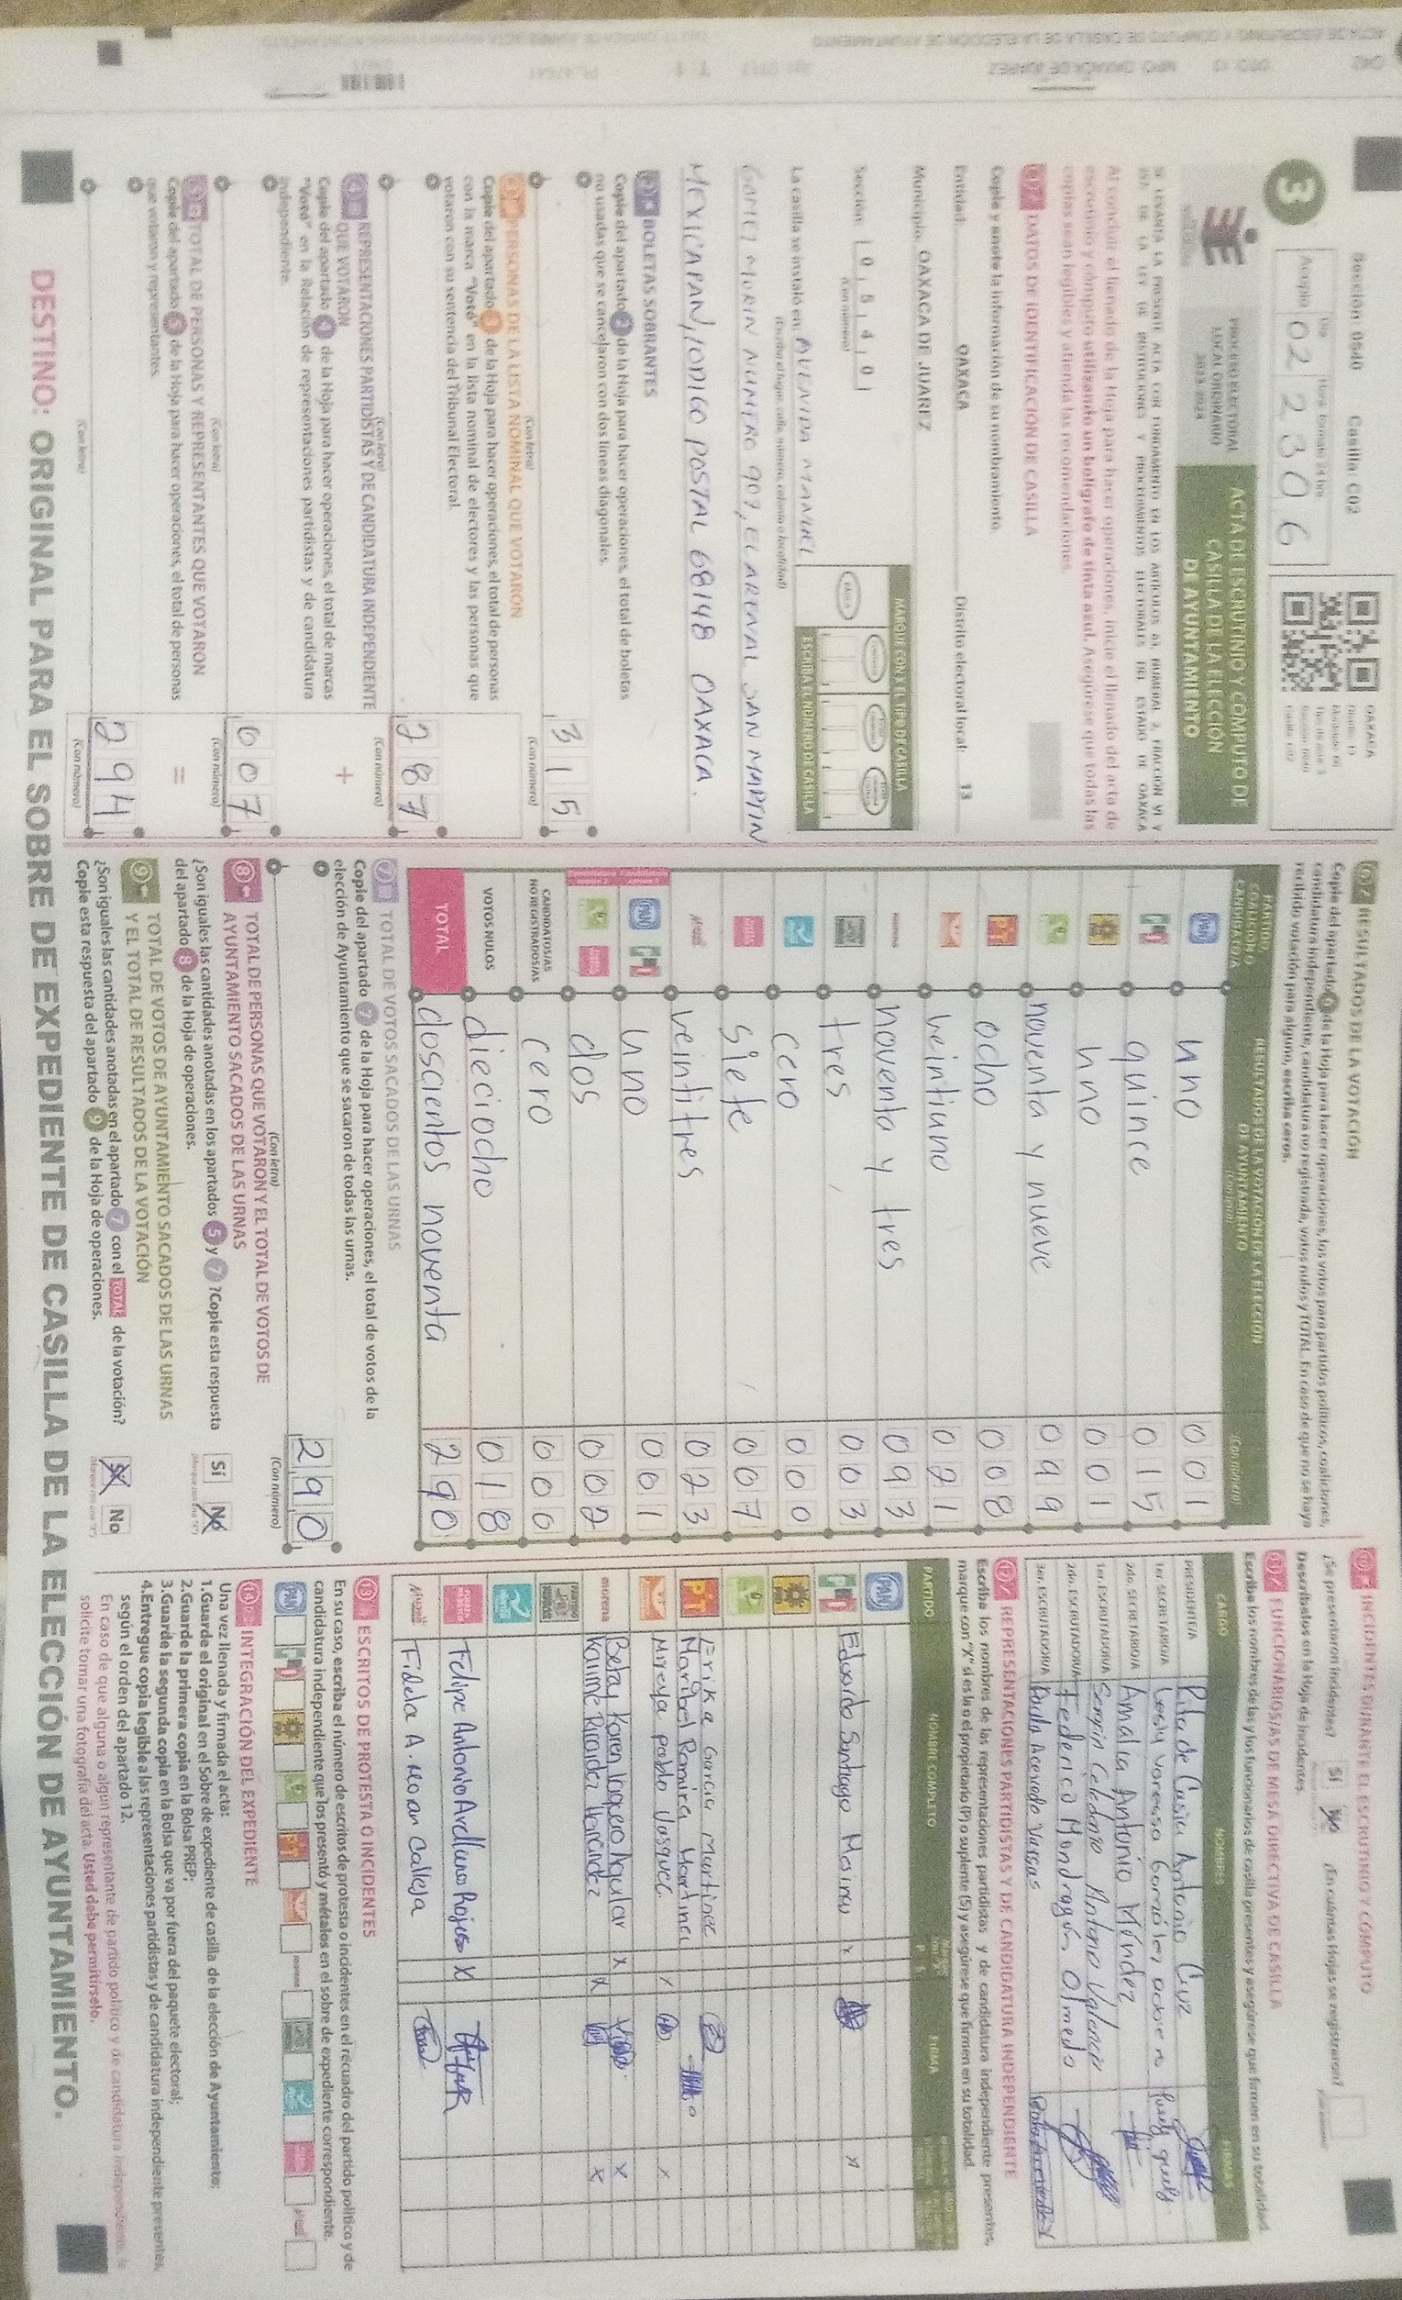 Sección: 0540 Casilla: C02
OAXACA
3
Acopio
02 2306
PROCESO ELECTORAL
LOCAL ORDINARIO
2023-2024
ACTA DE ESCRUTINIO Y CÓMPUTO DE
CASILLA DE LA ELECCIÓN
DE AYUNTAMIENTO
Al concluir el llenado de la Hoja para hacer operaciones, inicie el llenado del acta de
escrutinio y cómputo utilizando un bolígrafo de tinta azul. Asegúrese que todas las
copias sean legibles y atienda las recomendaciones.
1 DATOS DE IDENTIFICACIÓN DE CASILLA
Copie y anote la información de su nombramiento.
Entidad: OAXACA Distrito electoral local: 13
Municipio: OAXACA DE JUAREZ
Sección: 0 5 4 0
(Con número)
MARQUE CON X EL TIPO DE CASILLA
ESCRIBA EL NÚMERO DE CASILLA
La casilla se instaló en: AVENIDA MANUEL
GOMEZ MORIN NUMERO 907, EL ARENAL SAN MARTIN
MEXICAPAN, CODIGO POSTAL 68148 OAXACA.
2 BOLETAS SOBRANTES
Copie del apartado 2 de la Hoja para hacer operaciones, el total de boletas
no usadas que se cancelaron con dos líneas diagonales.
315
(Con letra) (Con número)
3 PERSONAS DE LA LISTA NOMINAL QUE VOTARON
Copie del apartado 3 de la Hoja para hacer operaciones, el total de personas
con la marca "Votó" en la lista nominal de electores y las personas que
votaron con su sentencia del Tribunal Electoral.
287
(Con letra) (Con número)
4 REPRESENTACIONES PARTIDISTAS Y DE CANDIDATURA INDEPENDIENTE
QUE VOTARON
+
Copie del apartado 4 de la Hoja para hacer operaciones, el total de marcas
"Votó" en la Relación de representaciones partidistas y de candidatura
independiente.
007
(Con letra) (Con número)
5 TOTAL DE PERSONAS Y REPRESENTANTES QUE VOTARON
=
Copie del apartado 5 de la Hoja para hacer operaciones, el total de personas
que votaron y representantes.
294
(Con letra) (Con número)
6 RESULTADOS DE LA VOTACIÓN
Copie del apartado 6 de la Hoja para hacer operaciones, los votos para partidos políticos, coaliciones,
candidatura independiente, candidatura no registrada, votos nulos y TOTAL. En caso de que no se haya
recibido votación para alguno, escriba ceros.
PARTIDO, COALICIÓN O CANDIDATO/A
RESULTADOS DE LA VOTACIÓN DE LA ELECCIÓN
DE AYUNTAMIENTO
(Con letra) (Con número)
PAN uno 001
PRI quince 015
uno 001
noventa y nueve 099
PT ocho 008
veintiuno 021
morena noventa y tres 093
tres 003
cero 000
siete 007
veintitres 023
PAN PRI uno 001
dos 002
CANDIDATOS/AS
NO REGISTRADOS/AS cero 000
VOTOS NULOS dieciocho 018
TOTAL doscientos noventa 290
7 TOTAL DE VOTOS SACADOS DE LAS URNAS
Copie del apartado 7 de la Hoja para hacer operaciones, el total de votos de la
elección de Ayuntamiento que se sacaron de todas las urnas.
290
(Con letra) (Con número)
8 TOTAL DE PERSONAS QUE VOTARON Y EL TOTAL DE VOTOS DE
AYUNTAMIENTO SACADOS DE LAS URNAS
¿Son iguales las cantidades anotadas en los apartados 5 y 7? Copie esta respuesta
del apartado 8 de la Hoja de operaciones.
Sí No
9 TOTAL DE VOTOS DE AYUNTAMIENTO SACADOS DE LAS URNAS
Y EL TOTAL DE RESULTADOS DE LA VOTACIÓN
¿Son iguales las cantidades anotadas en el apartado 7 con el TOTAL de la votación?
Copie esta respuesta del apartado 9 de la Hoja de operaciones.
Sí No
10 INCIDENTES DURANTE EL ESCRUTINIO Y CÓMPUTO
¿Se presentaron incidentes? Sí No ¿En cuántas Hojas se registraron?
Descríbalos en la Hoja de incidentes.
11 FUNCIONARIOS/AS DE MESA DIRECTIVA DE CASILLA
Escriba los nombres de las y los funcionarios de casilla presentes y asegúrese que firmen en su totalidad.
CARGO NOMBRES FIRMAS
PRESIDENTE/A Rita de Casia Antonio Cruz
1er. SECRETARIO/A
2do. SECRETARIO/A Amalia Antonio Méndez
1er. ESCRUTADOR/A Serafin Celedonio Antonio Valencia
2do. ESCRUTADOR/A Federico Mondragón Olmedo
3er. ESCRUTADOR/A Paula Acevedo Vargas
12 REPRESENTACIONES PARTIDISTAS Y DE CANDIDATURA INDEPENDIENTE
Escriba los nombres de las representaciones partidistas y de candidatura independiente presentes,
marque con "X" si es la o el propietario (P) o suplente (S) y asegúrese que firmen en su totalidad.
PARTIDO NOMBRE COMPLETO FIRMA
PAN
PRI Eduardo Santiago
PT Erika Garcia Martinez
Maribel Ramirez Martinez
Mireya Pablo Vasquez
morena Betsy Karen Aguilar
Felipe Antonio Arellano Rojas
Fidela A.
13 ESCRITOS DE PROTESTA O INCIDENTES
En su caso, escriba el número de escritos de protesta o incidentes en el recuadro del partido político y de
candidatura independiente que los presentó y métalos en el sobre de expediente correspondiente.
14 INTEGRACIÓN DEL EXPEDIENTE
Una vez llenada y firmada el acta:
1.Guarde el original en el Sobre de expediente de casilla de la elección de Ayuntamiento;
2.Guarde la primera copia en la Bolsa PREP;
3.Guarde la segunda copia en la Bolsa que va por fuera del paquete electoral;
4.Entregue copia legible a las representaciones partidistas y de candidatura independiente presentes,
según el orden del apartado 12.
En caso de que alguna o algún representante de partido político y de candidatura independiente, le
solicite tomar una fotografía del acta. Usted debe permitírselo.
DESTINO: ORIGINAL PARA EL SOBRE DE EXPEDIENTE DE CASILLA DE LA ELECCIÓN DE AYUNTAMIENTO.